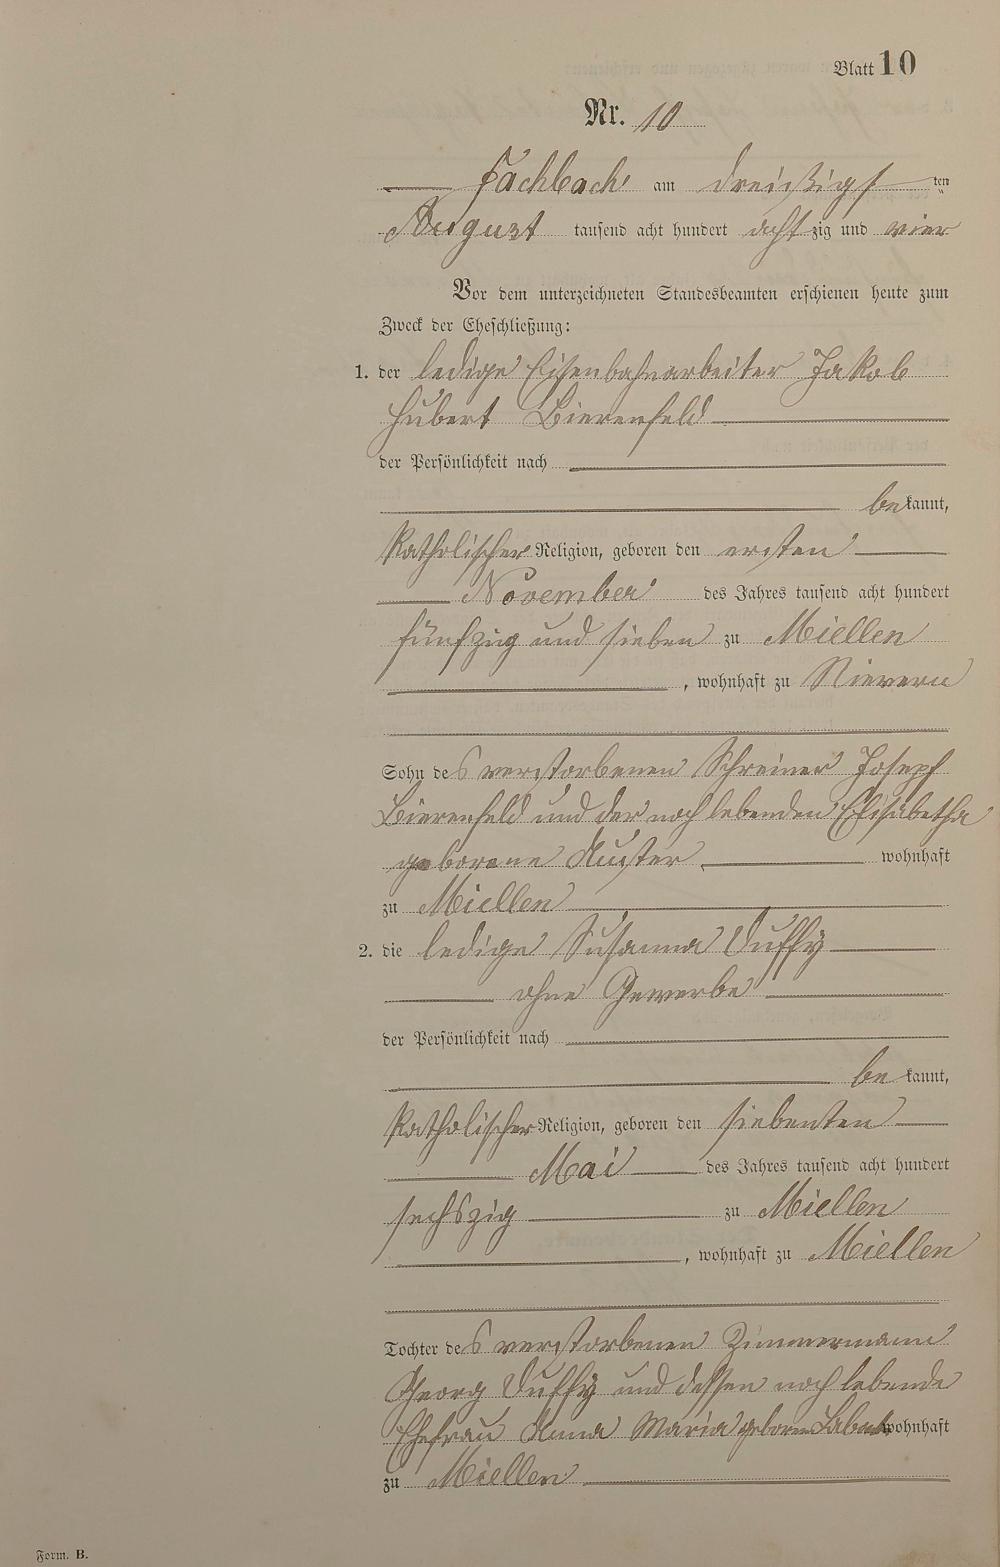 Blatt 10
Nr. 10
Fachbach am dreißigsten
August tausend acht hundert achtzig und vier
Vor dem unterzeichneten Standesbeamten erschienen heute zum
Zweck der Eheschließung:
1. der ledige Eisenbahnarbeiter Jakob
Hubert Bierenfeld
der Persönlichkeit nach
bekannt,
katholischer Religion, geboren den ersten
November des Jahres tausend acht hundert
fünfzig und sieben zu Miellen
, wohnhaft zu Nievern
Sohn des verstorbenen Schreiner Joseph
Bierenfeld und der noch lebenden Elisabetha
geborene wohnhaft
zu Miellen
2. die ledige Susanna Duffy
ohne Gewerbe
der Persönlichkeit nach
bekannt,
katholischer Religion, geboren den siebenten
Mai des Jahres tausend acht hundert
sechszig zu Miellen
, wohnhaft zu Miellen
Tochter des verstorbenen Zimmermann
Georg Duffy und dessen noch lebende
Ehefrau Anna Maria geborne wohnhaft
zu Miellen
Form. B.